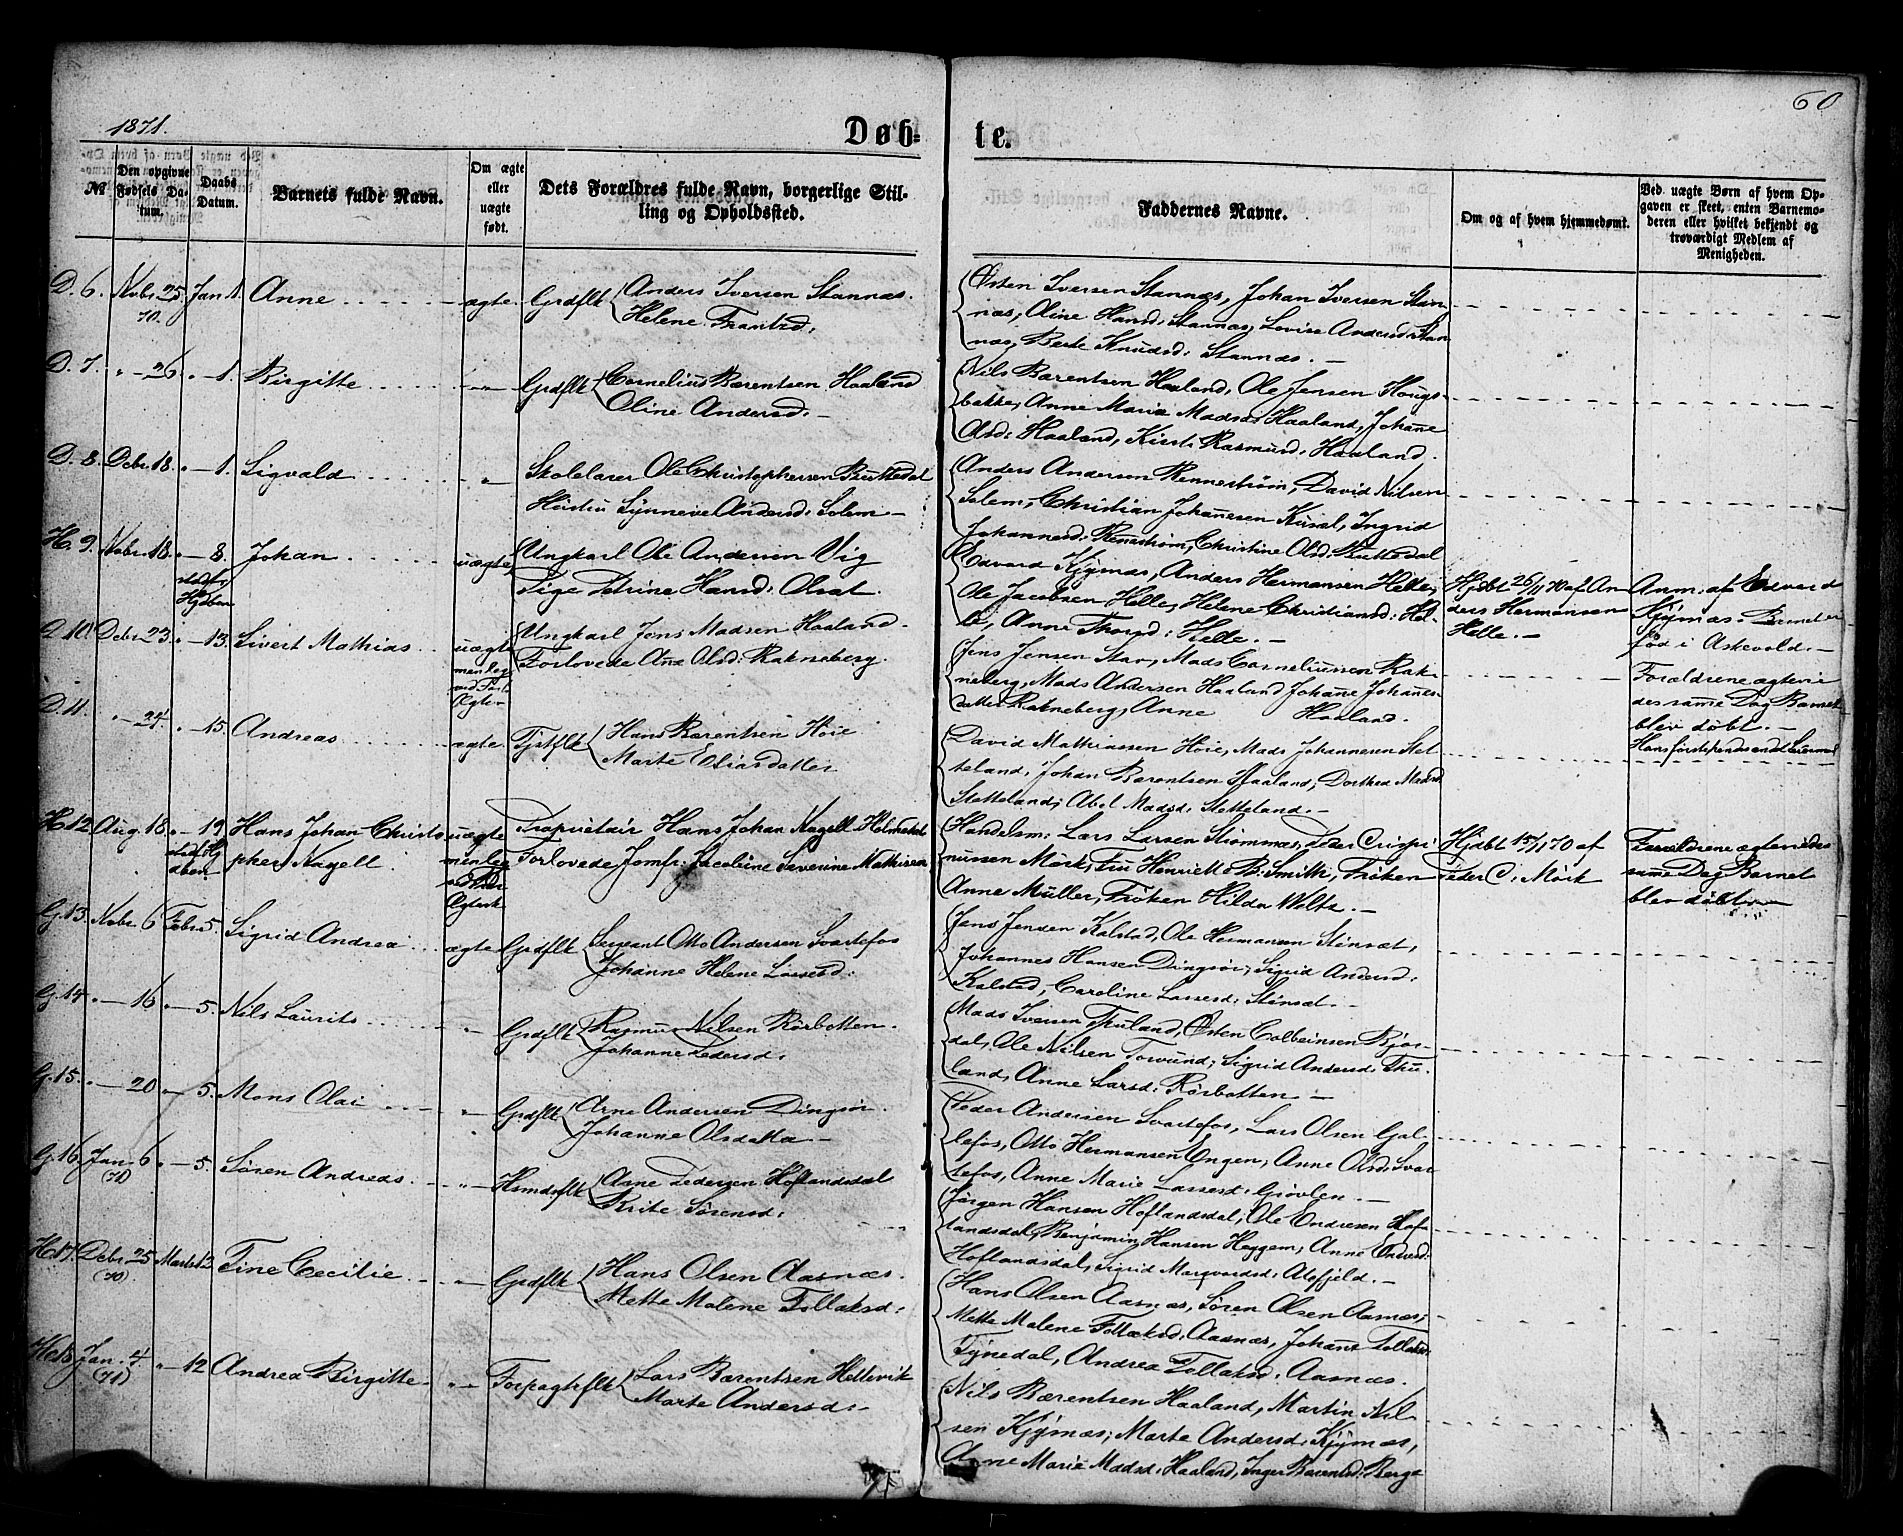 1871.
60
Døb-
te.
№
Den opgivne Fødsels Datum.
Daabs Datum.
Barnets fulde Navn.
Om ægte eller uægte født.
Dets Forældres fulde Navn, borgerlige Stilling og Opholdssted.
Faddernes Navne.
Om og af hvem hjemmedømt.
Ved uægte Børn af hvem Opgaven er skeet, enten Barnemoderen eller hvilket bekjendt og troværdigt Medlem af Menigheden.
D. 6. Nobr 25 70. Jan 1. Anne ægte Grdflk Anders Iversen Stannæs.
Helene Frantsd:
Østen Iversen Stannæs, Johan Iversen Stan-
næs, Oline Hansd: Stannæs, Lovise Andersd: Stan-
næs, Berte Knudsd: Stannæs. —
D. 7. " - 26 " - 1. Birgitte " Grdflk Cornelius Bærentsen Haaland
Oline Andersd. —
Nils Bærentsen Haaland, Ole Jensen Hougs-
bakke, Anne Marie Madsd: Haaland, Johane
Olsd: Haaland, Kirsti Rasmusd: Haaland.
D. 8. Debr 18. " - 1. Sigvald " Skolelærer Ole Christophersen Buttedal
Hustru Synneve Andersd: Solem —
Anders Andersen Rennestrøm, David Nilsen
Solem, Christian Johanesen Kusal, Ingrid
Johannesd: Rennestrøm, Christine Olsd: Buttedal
H. 9. Nobr 18. " - 8. Johan uægte Ungkarl Ole Andersen Vig
Pige Petrine Hansd: Olsat.
Edvard Kjymæs, Anders Hermansen Helle,
Ole Jacobsen Helle, Helene Christiansd: Hel-
le, Anne Thorsd: Helle. —
Hjdbt 26/11 70 af An-
ders Hermansen
Helle. —
Anm. af Edvard
Kjymæs. Barnet er
fød i Askevold. —
D. 10. Debr 23. " - 13. Sivert Mathias uægte Ungkarl Jens Madsen Haaland
Forlovede Ane Olsd: Rakneberg.
Jens Jensen Stav, Mads Corneliussen Rak-
neberg, Mads Andersen Haaland, Johane Johanes-
datter Rakneberg, Anne Haaland.
Forældrene ægtevie-
des samme Dag Barnet
blev døbt. —
D. 11. " - 24 " - 15. Andreas ægte Pjstflk Hans Bærentsen Høie
Marte Eliasdatter
David Mathiassen Høie, Mads Johannesen Stet-
teland, Johan Bærentsen Haaland, Dorthea Madsd:
Stetteland, Abel Madsd: Stetteland. —
H. 12. Aug 18. " - 19 Hans Johan Christo-
pher Nagell uægte Proprietair Hans Johan Nagell Holmedal
Forlovede Jomfr: Jacobine Severine Mathisen
Handelsm: Lars Larsen Strømmæs, Peder Crispi-
nussen Mørk, Fru Henriette B. Smith, Frøken
Anne Müller, Frøken Hilda Weltz. —
Hjdbt 15/11 70 af
Peder C. Mørk
Forældrene ægteviedes
samme Dag Barnet
blev døbt
G. 13. Nobr 6 Febr 5. Sigrid Andrea ægte Grdflk Sergeant Otto Andersen Svartefos
Johanne Helene Lassesd:
Jens Jensen Kalstad, Ole Hermansen Stensæt,
Johannes Hansen Dingsør, Sigrid Andersd:
Kalstad, Caroline Lassesd: Stensæt. —
G. 14. " - 16 " - 5. Nils Laurits " Grdflk Rasmus Nilsen Rørbotten.
Johanne Pedersd:
Mads Iversen Thuland, Østen Colbeinsen Bjør-
dal, Ole Nilsen Torvund, Sigrid Andersd: Thu-
land, Anne Larsd: Rørbotten —
G. 15. " - 20 " - 5. Mons Olai " Grdflk Arne Andersen Dingsør.
Johanne Olsdatter —
Peder Andersen Svartefos, Lars Olsen Gul-
lefos, Otto Hermansen Engen, Anne Olsd: Svar-
tefos, Anne Marie Lassesd: Gjøvlen. —
G. 16 Jan. 6 (71) " - 5. Søren Andreas " Hsmdsflk Aane Pedersen Hoflandsdal
Brite Sørensd:
Jørgen Hansen Hoflandsdal, Ole Endresen Hof-
landsdal, Benjamin Hansen Heggem, Anne Endresd:
Hoflandsdal, Sigrid Marqvardsd: Alefjeld. —
H. 17. Debr 25 (70) Marts 12. Tine Cecilie " Grdflk Hans Olsen Aasnæs.
Mette Malene Tollaksd:
Hans Olsen Aasnæs, Søren Olsen Aasnæs,
Mette Malene Tollaksd: Aasnæs, Johane Tollaksd:
Tynedal, Andrea Tollaksd: Aasnæs.
H. 18. Jan. 4. (71) " - 12 Andrea Birgitte " Forpagtrflk Lars Bærentsen Hellevik
Marte Andersd: —
Nils Bærentsen Haaland, Martin Nil-
sen Kjymæs, Marte Andersd: Kjymæs,
Anne Marie Madsd: Haaland, Inger Bærentsd: Berge